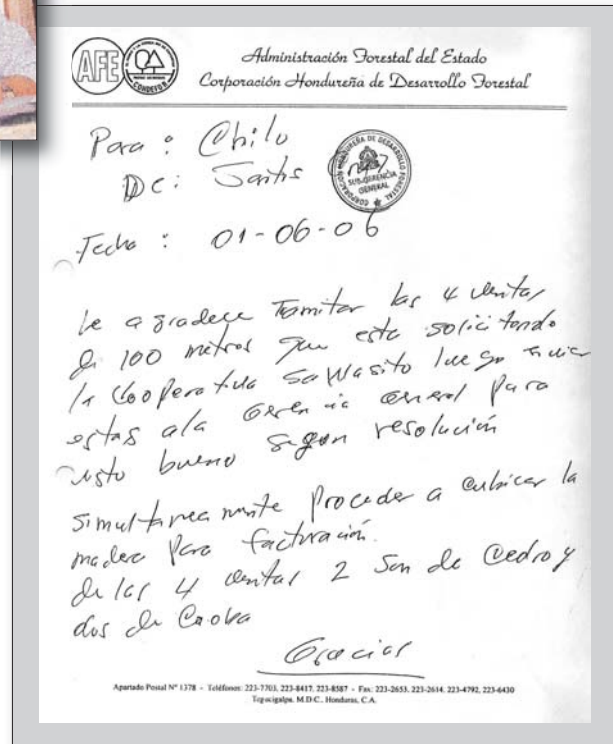 AFE
COHDEFOR
Administración Forestal del Estado
Corporación Hondureña de Desarrollo Forestal
CORPORACIÓN HONDUREÑA DE DESARROLLO FORESTAL
SUB-GERENCIA
GENERAL
Para : Chilo
De : Santos
Fecha : 01-06-06
Le agradece Tramitar las 4 ventas
de 100 metros que esta solicitando
la Cooperativa Sawasito luego enviar
estas a la Gerencia General para
visto bueno segun resolución
Simultaneamente Proceder a cubicar la
madera para facturación.
de las 4 ventas 2 son de Cedro y
dos de Caoba
Gracias
Apartado Postal Nº 1378 - Teléfonos: 223-7703, 223-8417, 223-8587 - Fax: 223-2653, 223-2614, 223-4792, 223-6430
Tegucigalpa, M.D.C., Honduras, C.A.